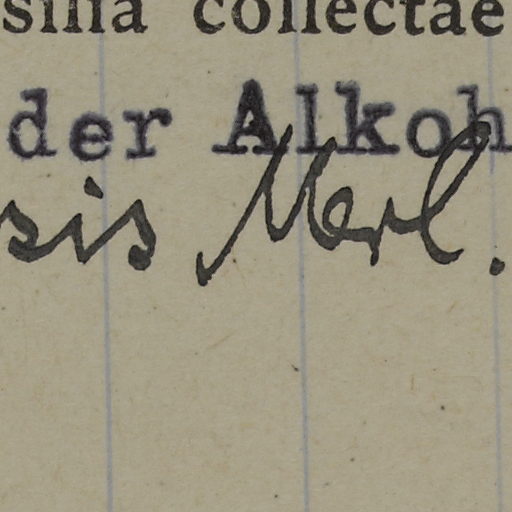 silia collectae
der Alkoh
sis Merl.